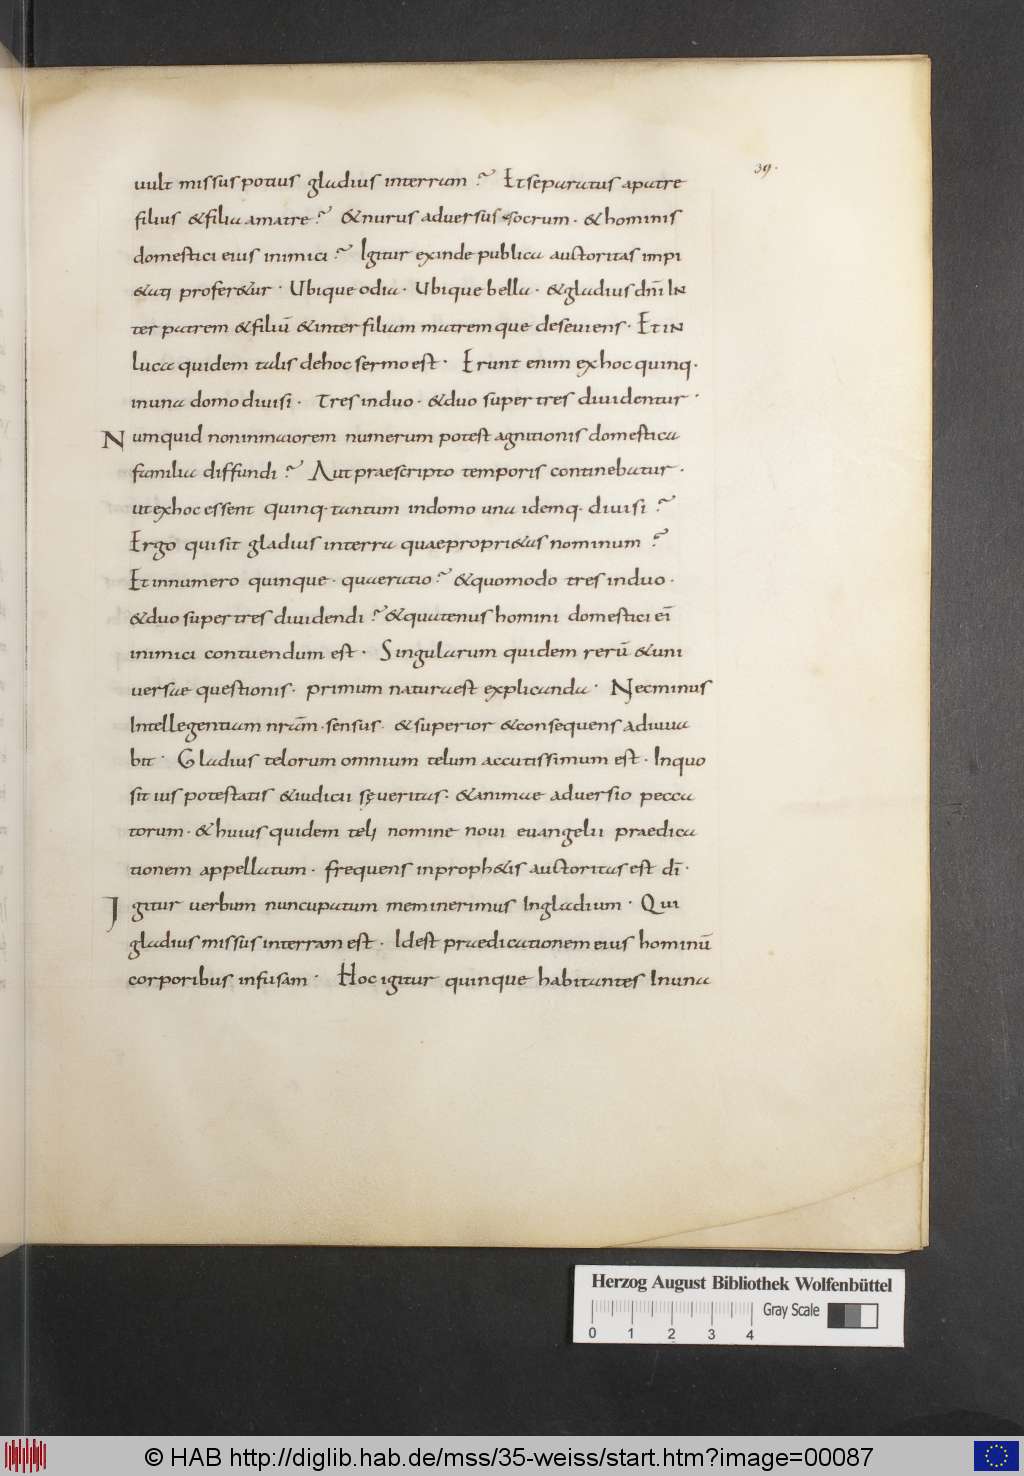 39.
uult missus potius gladius interram? Et separatus apatre
filius & filia amatre? & nurus aduersus socrum. & hominis
domestici eius inimici? Igitur exinde publica auctoritas impi
&ati profer&ur. Ubique odia. Ubique bella. & gladius dn̄i IN
ter patrem & filiū & inter filiam matremque deseuiens. Et IN
luca quidem talis dehoc sermo est. Erunt enim exhoc quinq.
inuna domo diuisi. Tres induo. & duo super tres diuidentur.
Numquid non inmaiorem numerum potest agnitionis domestica
familia diffundi? Aut praescripto temporis continebatur.
ut exhoc essent quinq. tantum indomo una idemq. diuisi?
Ergo qui sit gladius interra quae propri&as nominum?
Et innumero quinque. quae ratio? & quomodo tres induo.
& duo super tres diuidendi? & quatenus homini domestici eī
inimici contuendum est. Singularum quidem rerū & uni
uersae questionis. primum natura est explicanda. Nec minus
Intellegentiam nrām. sensus. & superior & consequens adiuua
bit. Gladius telorum omnium telum accutissimum est. Inquo
sit ius potestatis & iudicii sęueritas. & animae aduersio pecca
torum. & huius quidem teli nomine noui euangelii praedica
tionem appellatum. frequens inproph&is auctoritas est dī.
Igitur uerbum nuncupatum meminerimus Ingladium. Qui
gladius missus interram est. Idest praedicationem eius hominū
corporibus infusam. Hoc igitur quinque habitantes Inuna
Herzog August Bibliothek Wolfenbüttel
Gray Scale
0 1 2 3 4
© HAB http://diglib.hab.de/mss/35-weiss/start.htm?image=00087